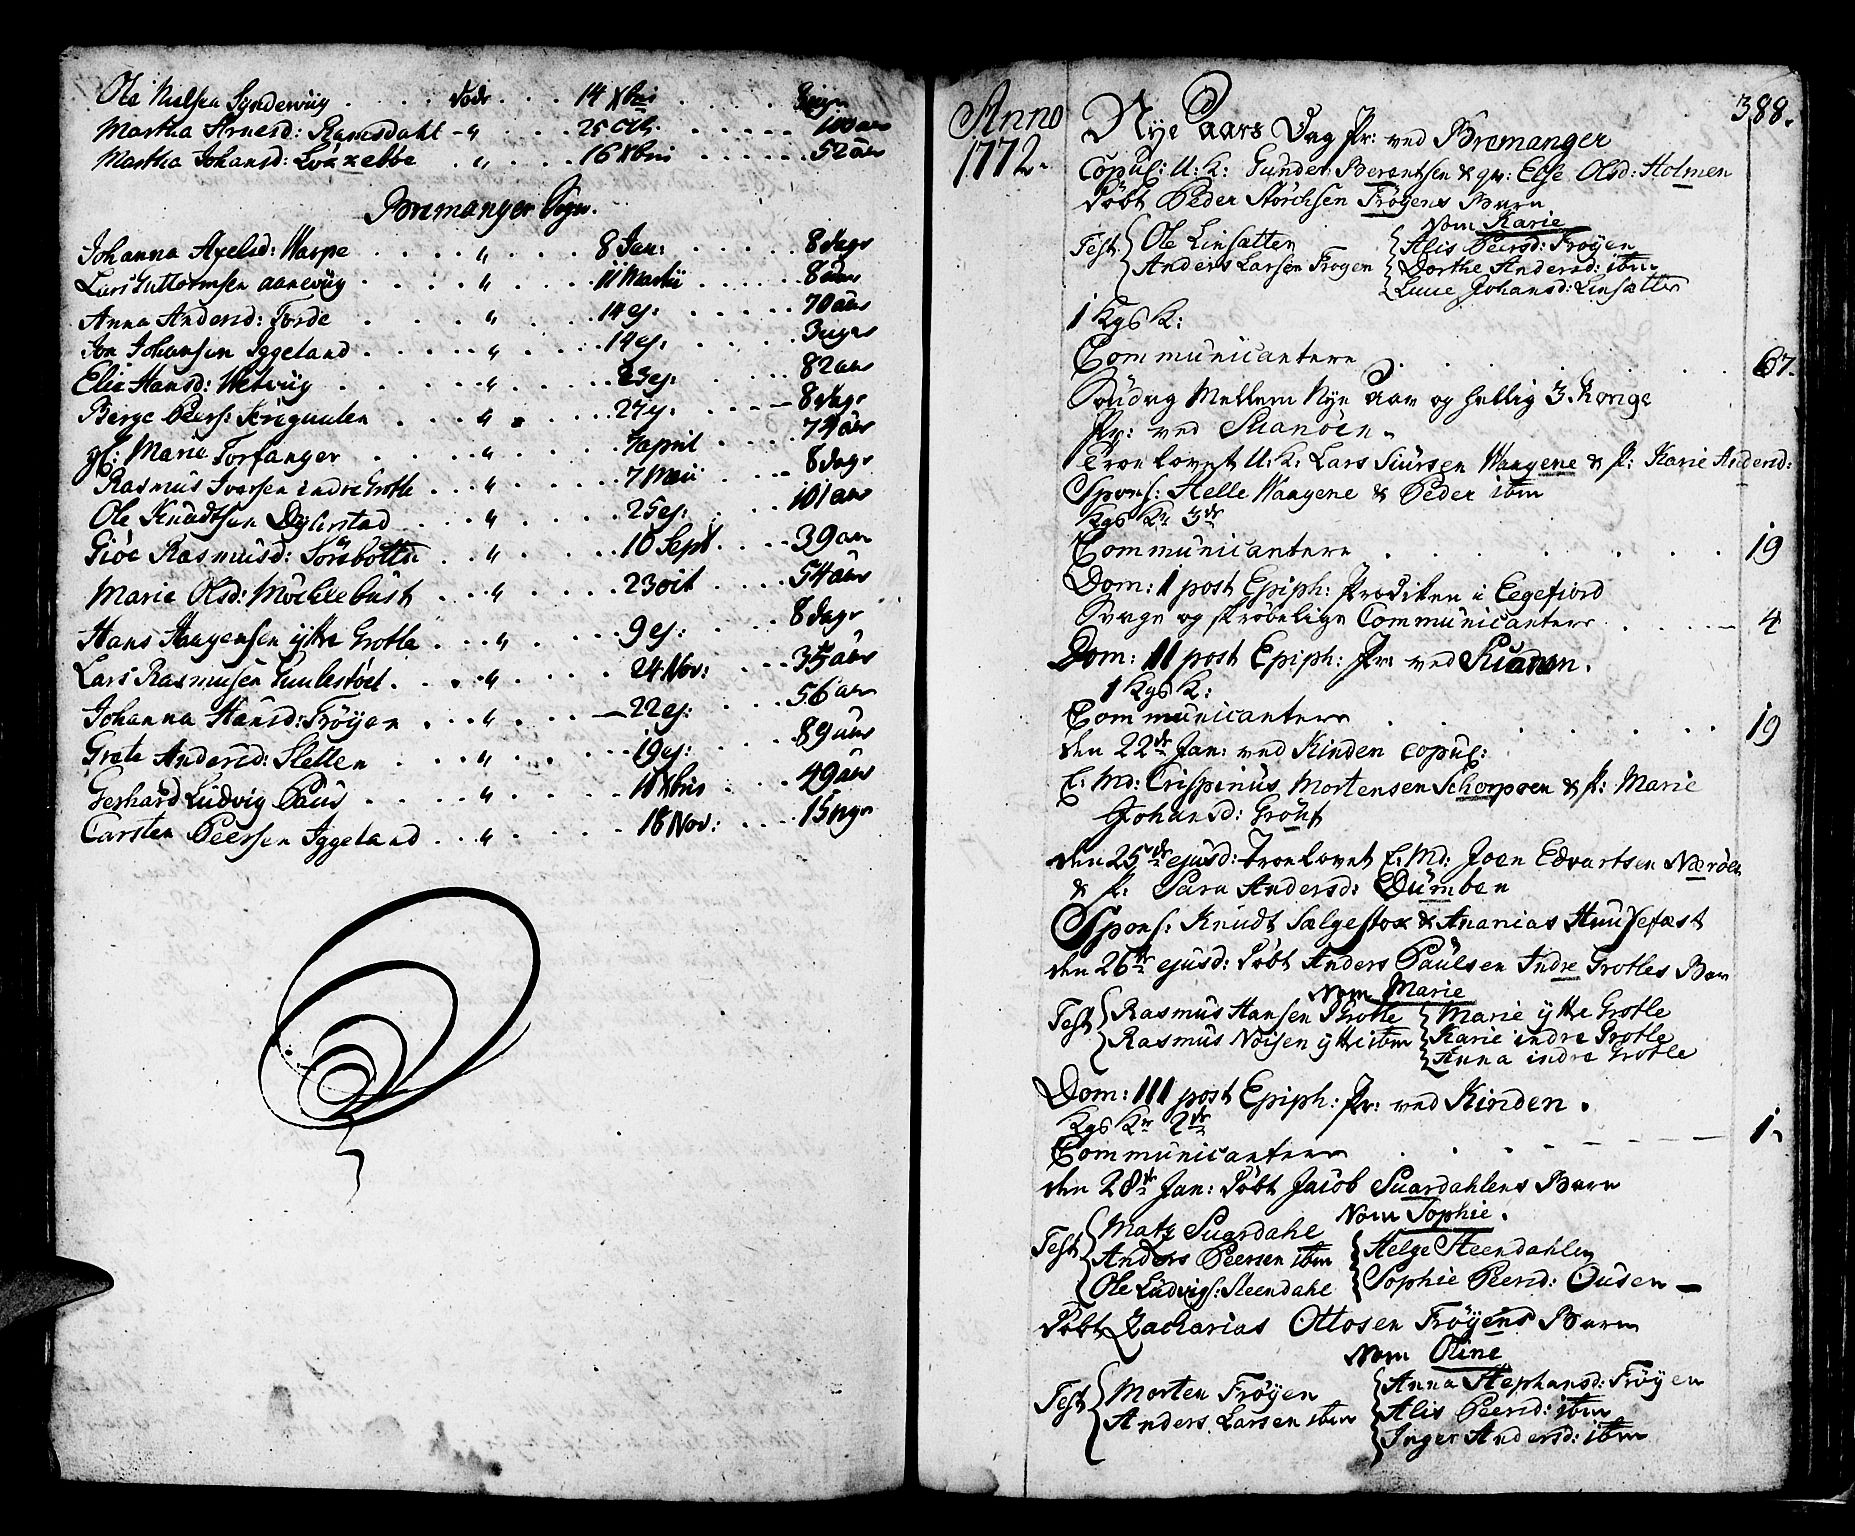 Ole Nielsen Syndervüg . . . . döde . . . 14 Xbris . . . . . 8 uger
Martha Arnesd: Ramsdahl - " . . . 25 Oct: . . . . . . 100 aar
Martha Johansd: . . " . . . 16 Xbris . . . . . . 52 aar
Bremanger Sogn.
Johanna Axelsd: Warpe . . . . " . . . 8 Jan: . . . . . 8 dage
Lars Guttormsen aanevüg . . . . " . . . 11 Martii . . . . . 8 dage
Anna Andersd: Förde . . . . " . . . 14 ej: . . . . . 70 aar
Jon Johansen Iggeland . . . . " . . . 19 ej: . . . . . 3 uger
Elie Hansd: Wetvüg . . . . " . . . 23 ej: . . . 82 aar
Berge Peers: . . . " . . . 27 ej: . . . 8 dage
gl: Marie Torfanger . . . " . . . 7 april . . . 74 aar
Rasmus Iversen indre Grotle . . . " . . . 7 Maii . . . 8 dage
Ole Knudtsen Dylerstad . . . " . . . 25 ej: . . . 101 aar
Giöe Rasmusd: Sörsbotten . . " . . . 10 Sept . . . 39 aar
Marie Olsd: Möcklebust . . . " . . . 23 oct . . . 54 aar
Hans Haagensen ijttre Grotle . . . " . . . 9 ej: . . . 8 dage
Lars Rasmusen Gulestöel . . . " . . . 24 Nov: . . . 35 aar
Johanna Hansd: Fröyen . . . " . . . 22 ej: . . . 56 aar
Grete Andersd: Sletten . . . " . . . 19 ej: . . . 89 aar
Gerhard Ludvig Paus . . . " . . . 10 Xbris . . . 49 aar
Carsten Peersen Iggeland . . . " . . . 18 Nov: . . . 15 uger
388.
Anno
1772.
Nye Aars Dag Pr: ved Bremanger
Copul: U: K: Gunder Berentsen & qv: Else Olsd: Holmen
Döbt Peder Störchsen Fröyens Barn
Nom Karie
Test { Ole Linsætter { Alis Peersd: Fröyen
Anders Larsen Fröyen { Dorthe Andersd: ibm
Lucie Johansd: Linsætter
1 Kgs K:
Communicantere . . . . . 67.
Söndag Mellem Nye Aar og hellig 3 Konge
Pr: ved Suanöen.
Troelovet U: K: Lars Siürsen Waagene & P: Karie Andersd:
Spons: Helle Waagene & Peder ibm
Kgs Kr 3de
Communicantere . . . . . 19
Dom: I post Epiph: Prædiken i Eegefiord
Svage og skröbelige Communicantere . . . 4
Dom: II post Epiph: Pr: ved Suanöen.
1 Kgs K:
Communicantere . . . . . 19
den 22de Jan: ved Kinden copul:
E: Md: Crispinus Mortensen Schorpoen & P: Marie
Johansd: Gröüf
den 25de ejusd: Troelovet E: Md: Joen Edvartsen Næröen
& P: Sara Andersd: Dümben
Spons: Knudt Salgestox & Ananias Husefæst
den 26de ejusd: döbt Anders Paülsen Indre Grotles Barn
Nom Marie
Test { Rasmus Hansen Grotle { Marie ijttre Grotle
Rasmus Noisen ijttre ibm { Karie indre Grotle
Anna indre Grotle
Dom: III post Epiph: Pr: ved Kinden.
Kgs Kr 2de
Communicantere . . . . . 1.
den 28de Jan: döbt Jacob Suardahlens Barn
Nom Sophie.
Test { Matz Suardahl { Helge Steendahlen
Anders Peersen ibm { Sophie Peersd: Ousen
Ole Ludvigs: Steendahl
döbt Zacharias Ottosen Fröyens Barn
Nom Oline
Test { Morten Fröyen { Anna Stephansd: Fröyen
Anders Larsen ibm { Alis Peersd: ibm
Inger Andersd: ibm